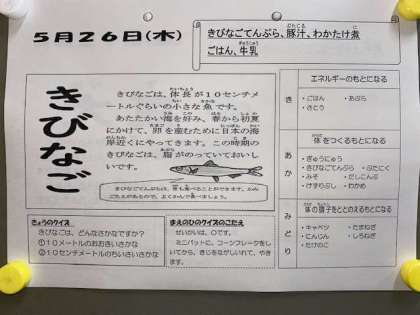 5月26日(木)
きびなごてんぷら、豚汁、わかたけ煮
ごはん、牛乳
きびなご
きびなごは、体長が10センチメ
ートルぐらいの小さな魚です。
あたたかい海を好み、春から初夏
にかけて、卵を産むために日本の海
岸近くにやってきます。この時期の
きびなごは、脂がのっていておいし
いです。
きびなごてんぷらは、骨も食べることができます。かみ
ごたえがあるので、よくかんで食べましょう。
きょうのクイズ
きびなごは、どんなさかなですか?
①10メートルのおおきいさかな
②10センチメートルのちいさいさかな
まえのひのクイズのこたえ
せいかいは、〇です。
ミニパットに、コーンフレークをし
いてから、きじをながしいれて、やきま
す。
エネルギーのもとになる
き
・ごはん ・あぶら
・さとう
体をつくるもとになる
あか
・ぎゅうにゅう
・きびなごてんぷら ・ぶたにく
・みそ ・だしこんぶ
・けずりぶし ・わかめ
体の調子をととのえるもとになる
みどり
・キャベツ ・たまねぎ
・にんじん ・しろねぎ
・たけのこ